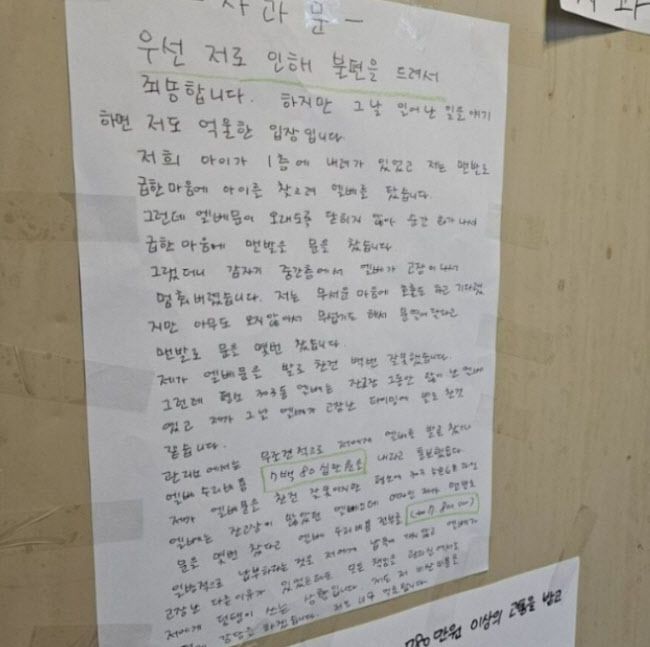 - 사 과 문 -
우선 저로 인해 불편을 드려서
죄송합니다. 하지만 그날 일어난 일을 얘기
하면 저도 억울한 입장입니다.
저희 아이가 1층에 내려가 있었고 저는 맨발로
급한마음에 아이를 찾으러 엘베를 탔습니다.
그런데 엘베문이 오래도록 닫히지 않아 순간 화가나서
급한마음에 맨발로 문을 찼습니다
그랬더니 갑자기 중간층에서 엘베가 고장이나서
멈춰버렸습니다. 저는 무서운 마음에 호출도 하고 기다렸
지만 아무도 오지않아서 무섭기도 해서 문열어달라고
맨발로 문을 몇번 찼습니다.
제가 엘베문을 발로 찬건 백번 잘못했습니다.
그런데 평소 엘베는 잔고장 그동안 많이 난 엘베
였고 제가 그날 엘베가 고장난 타이밍에 발로 찬것
같습니다.
관리소에서는 무조건적으로 저에게 엘베를 발로 찼으니
엘베 수리비용 7백 80 십만원을 내라고 통보했습니다
제가 엘베문을 찬건 잘못이지만 평소에
엘베는 잔고장이 많았던 엘베인데 제가 맨발로
문을 몇번 찼다고 엘베 수리비용 전부를
일방적으로 납부하라는 것은 저에게 납득이 가지 않고 엘베가
고장난 다른이유가 있었을텐데 모든 책임을
저에게 덤탱이 쓰는 상황입니다. 저도 저 비싼 비용을
감당을 못하겠습니다. 저도 너무 억울합니다
780만원 이상의 고통을 받고